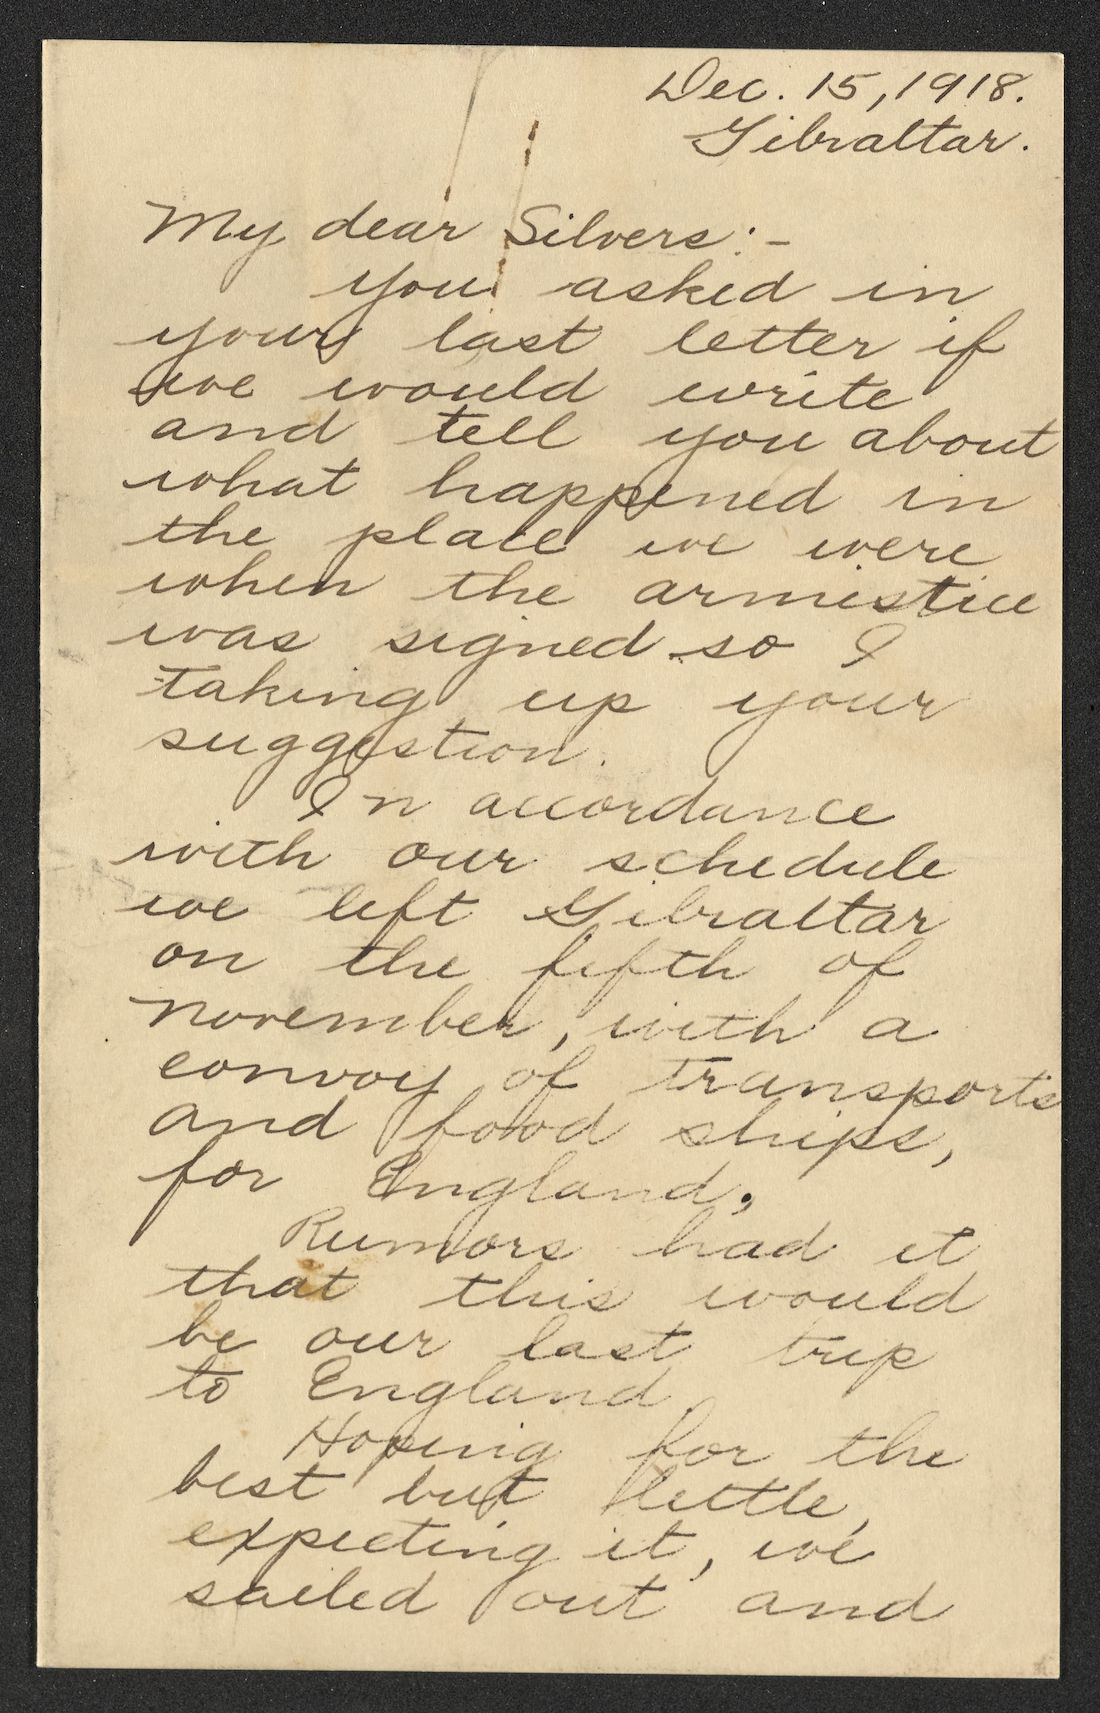 Dec. 15, 1918.
Gibraltar.
My dear Silvers:-
You asked in
your last letter if
we would write
and tell you about
what happened in
the place we were
when the armistice
was signed so I
taking up your
suggestion.
In accordance
with our schedule
we left Gibraltar
on the fifth of
November, with a
convoy of transports
and food ships,
for England.
Rumors had it
that this would
be our last trip
to England.
Hoping for the
best but little,
expecting it, we
sailed out and